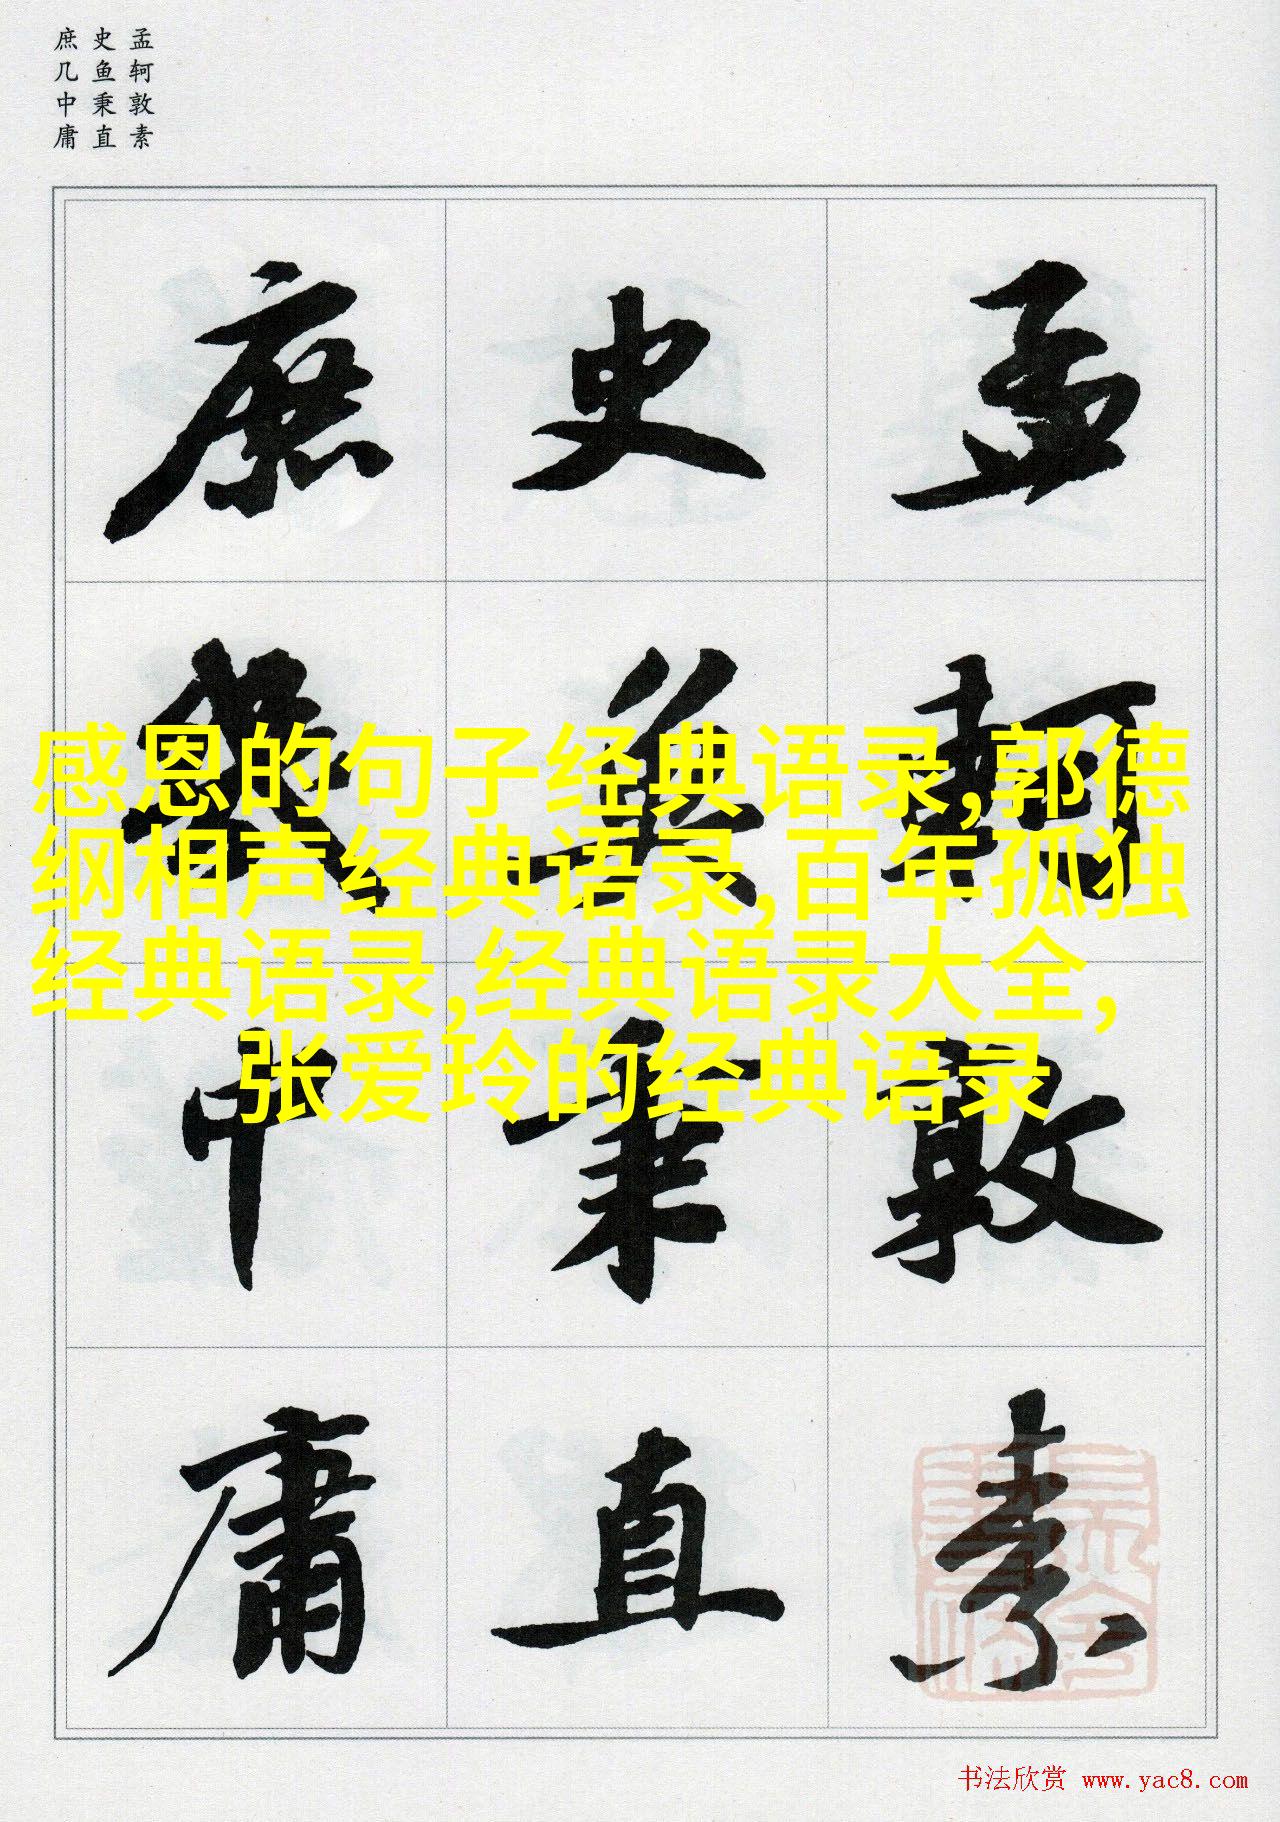 孟轲敦素
史鱼秉直
庶几中庸
孟轲敦素
史魚秉直
庶幾中庸
感恩的句子经典语录,郭德
纲相声经典语录,百年孤独
经典语录,经典语录大全,
张爱玲的经典语录
书法欣赏 www.yac8.com